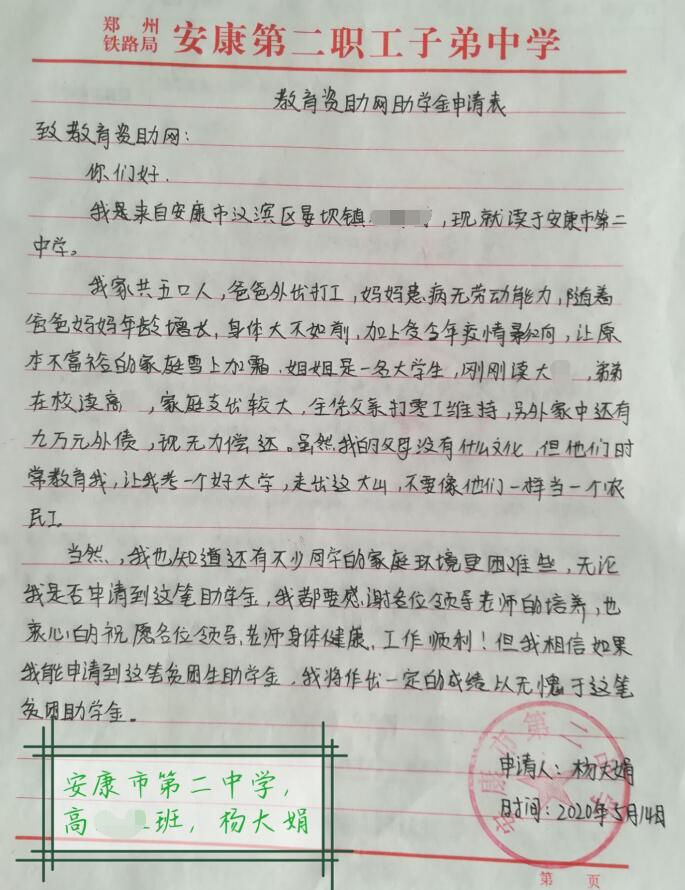 郑州
铁路局 安康第二职工子弟中学
教育资助网助学金申请表
致教育资助网:
你们好.
我是来自安康市汉滨区晏坝镇 , 现就读于安康市第二
中学。
我家共五口人,爸爸外出打工,妈妈患病无劳动能力,随着
爸爸妈妈年龄增长,身体大不如前,加上受今年疫情影响,让原
本不富裕的家庭雪上加霜.姐姐是一名大学生,刚刚读大 ,弟弟
在校读高 ,家庭支出较大,全凭父亲打零工维持,另外家中还有
九万元外债,现无力偿还。虽然我的父母没有什么文化,但他们时
常教育我,让我考一个好大学,走出这大山,不要像他们一样当一个农
民工.
当然,,我也知道还有不少同学的家庭环境更困难些,无论
我是否申请到这笔助学金,我都要感谢各位领导老师的培养,也
衷心的祝愿各位领导、老师身体健康、工作顺利!但我相信如果
我能申请到这笔贫困生助学金,我将作出一定的成绩以无愧于这笔
贫困助学金。
申请人:杨大娟
时间:2020年5月14日
安康市第二中学
安康市第二中学,
高 班,杨大娟
第 页